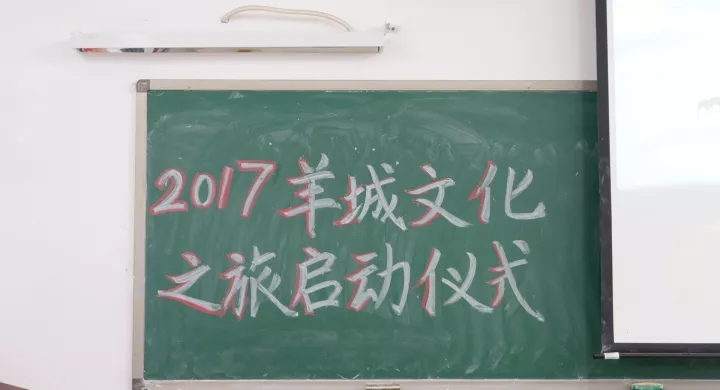 2017羊城文化
之旅启动仪式